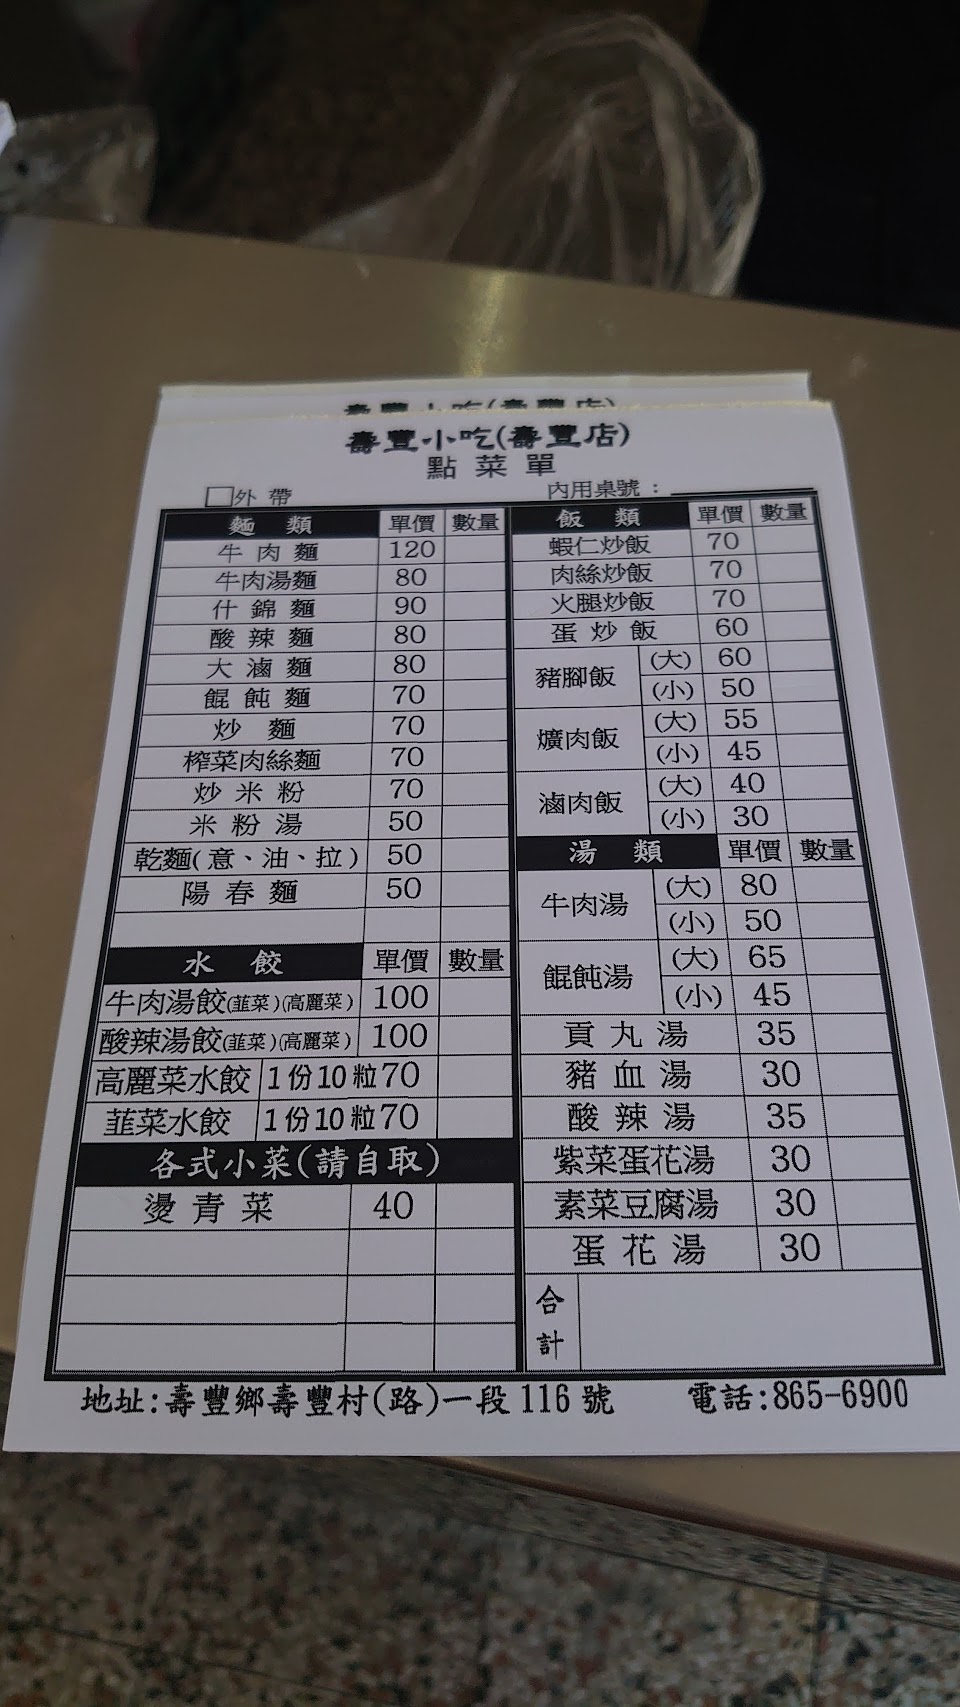 壽豐小吃(壽豐店)
壽豐小吃(壽豐店)
點菜單
外帶 內用桌號：
麵類 單價 數量
牛肉麵 120
牛肉湯麵 80
什錦麵 90
酸辣麵 80
大滷麵 80
餛飩麵 70
炒麵 70
榨菜肉絲麵 70
炒米粉 70
米粉湯 50
乾麵(意、油、拉) 50
陽春麵 50
水餃 單價 數量
牛肉湯餃(韮菜)(高麗菜) 100
酸辣湯餃(韮菜)(高麗菜) 100
高麗菜水餃 1份10粒70
韮菜水餃 1份10粒70
各式小菜(請自取)
燙青菜 40
飯類 單價 數量
蝦仁炒飯 70
肉絲炒飯 70
火腿炒飯 70
蛋炒飯 60
豬腳飯 (大) 60
(小) 50
爌肉飯 (大) 55
(小) 45
滷肉飯 (大) 40
(小) 30
湯類 單價 數量
牛肉湯 (大) 80
(小) 50
餛飩湯 (大) 65
(小) 45
貢丸湯 35
豬血湯 30
酸辣湯 35
紫菜蛋花湯 30
素菜豆腐湯 30
蛋花湯 30
合計
地址:壽豐鄉壽豐村(路)一段116號 電話:865-6900